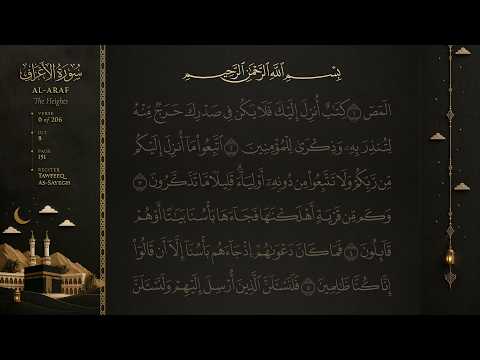 سُورَةُ الأَعْرَافِ
AL-ARAF
The Heights
VERSE
0 of 206
JUZ
8
PAGE
151
RECITER
TAWFEEQ
AS-SAYEGH
بِسْمِ ٱللَّهِ ٱلرَّحْمَٰنِ ٱلرَّحِيمِ
الٓمٓصٓ ١ كِتَٰبٌ أُنزِلَ إِلَيْكَ فَلَا يَكُن فِى صَدْرِكَ حَرَجٌ مِّنْهُ
لِتُنذِرَ بِهِۦ وَذِكْرَىٰ لِلْمُؤْمِنِينَ ٢ ٱتَّبِعُوا۟ مَآ أُنزِلَ إِلَيْكُم
مِّن رَّبِّكُمْ وَلَا تَتَّبِعُوا۟ مِن دُونِهِۦٓ أَوْلِيَآءَ ۗ قَلِيلًا مَّا تَذَكَّرُونَ ٣
وَكَم مِّن قَرْيَةٍ أَهْلَكْنَٰهَا فَجَآءَهَا بَأْسُنَا بَيَٰتًا أَوْ هُمْ
قَآئِلُونَ ٤ فَمَا كَانَ دَعْوَىٰهُمْ إِذْ جَآءَهُم بَأْسُنَآ إِلَّآ أَن قَالُوٓا۟
إِنَّا كُنَّا ظَٰلِمِينَ ٥ فَلَنَسْـَٔلَنَّ ٱلَّذِينَ أُرْسِلَ إِلَيْهِمْ وَلَنَسْـَٔلَنَّ